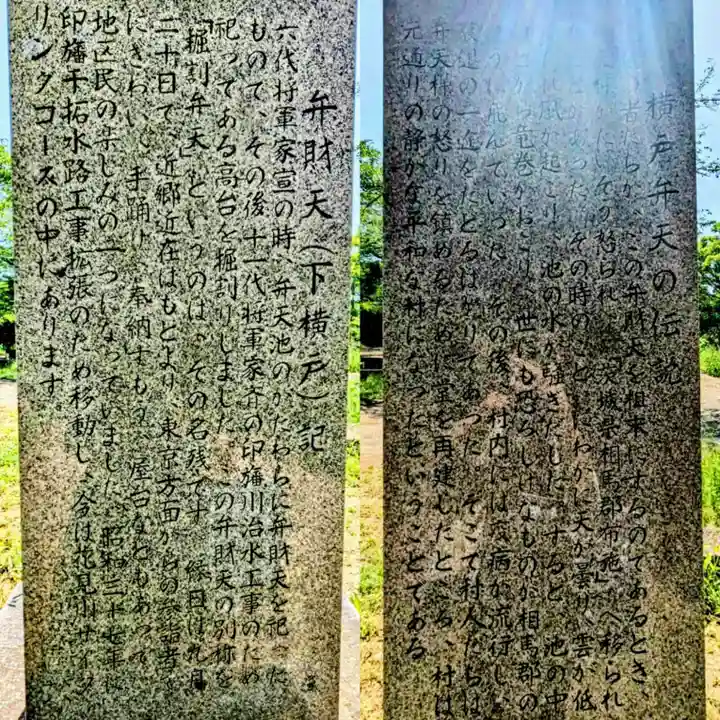 弁財天（下横戸）記
六代将軍家宣の時、弁天池のかたわらに弁財天を祀った
もので、その後十一代将軍家斉の印旛川治水工事のため
祀ってある高台を掘割りしました。この弁財天の別称を
「掘割弁天」というのは、その名残です。縁日は九月
二十日で、近郷近在はもとより、東京方面からの参詣者
にぎわい、手踊り、奉納すもう、屋台などもあって
地区民の楽しみの一つになっていました。昭和三十七年
印旛干拓水路工事拡張のため移動し、今は花見川サイク
リングコースの中にあります。
横戸弁天の伝説
者たちが、この弁財天を粗末にするのであるとき、
様はたいそう怒られ、茨城県相馬郡布施へ移られ
があった。その時のこと、にわかに天が曇り、雲が低
風が起こり、池の水が騒ぎだした。すると、池の中
から竜巻がおこり、世にも恐ろしげなものが相馬郡の
に飛んでいった。その後、村内には疫病が流行し
衰退の一途をたどるばかりであった。そこで村人たちは
弁天様の怒りを鎮めるため、堂を再建したところ、村は
元通りの静かな平和な村になったということである